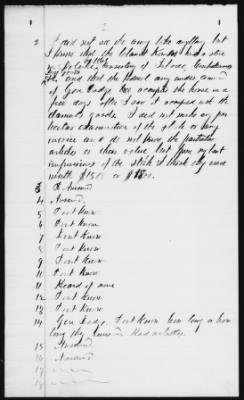 2
2 I did not see the army take anything but
I know that the claimant
in consisting of Tobacco, Confectionary
&c. and that the Federal army under command
of Gen Dodge &c occupied the house in a
few days after I saw it occupied with the
claimants goods. I did not make any par-
ticular examination of the stock or any
and do not know the particular
articles or their value, but from my best
impressions of the stock I think they were
worth $1500 or $1800.
3 Answered
4 Answered
5 Dont Know
6 Dont Know
7 Dont Know
8 Dont Know
9 Dont Know
10 Dont Know
11 Dont Know
11 Heard of none
12 Dont Know
13 Dont Know
14 Gen Dodge. Dont Know how long or how
long they Had
15 Answered
16 Answered
17
18